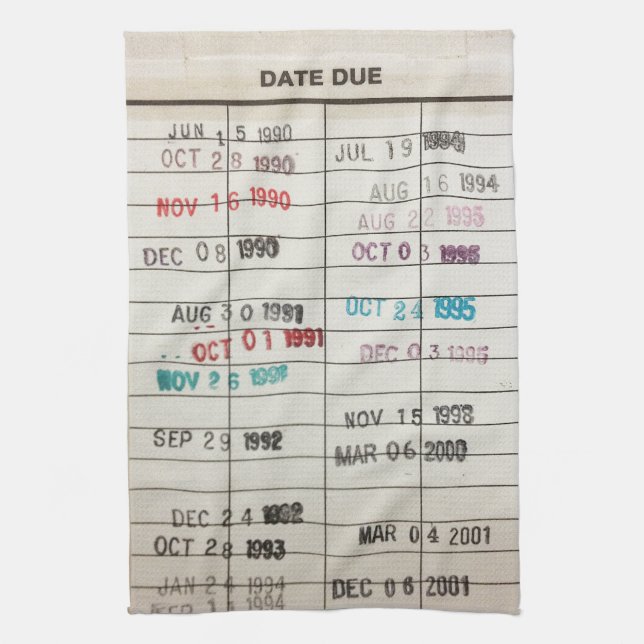 DATE DUE
JUN 15 1990
OCT 28 1990
NOV 16 1990
DEC 08 1990
AUG 30 1991
OCT 01 1991
NOV 26 1991
SEP 29 1992
DEC 24 1992
OCT 28 1993
JAN 24 1994
FEB 14 1994
JUL 19 1994
AUG 16 1994
AUG 22 1995
OCT 03 1995
OCT 24 1995
DEC 03 1995
NOV 15 1998
MAR 06 2000
MAR 04 2001
DEC 06 2001